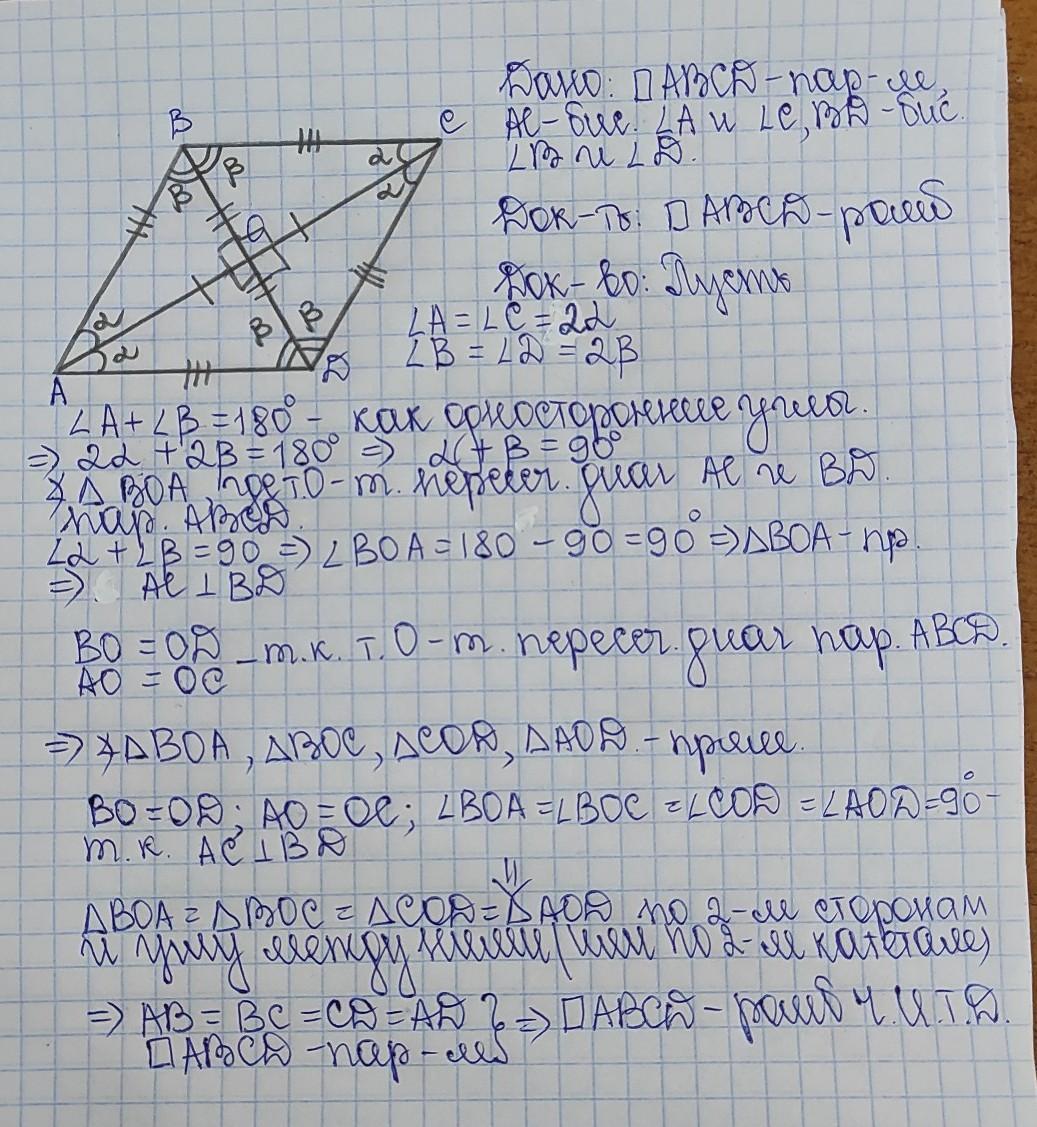 Дано: □ABCD-пар-м,
AC-бис. ∠A и ∠C, BD-бис.
∠B и ∠D.
Док-ть: □ABCD-ромб
Док-во: Пусть
∠A = ∠C = 2α
∠B = ∠D = 2β
B
C
α
α
β
β
O
α
α
β
β
A
D
∠A + ∠B = 180° - как односторонние углы.
=> 2α + 2β = 180° => α + β = 90°
∆BOA, где т.O-т. пересеч. диаг AC и BD.
пар. ABCD.
∠α + ∠β = 90 => ∠BOA = 180 - 90 = 90° => ∆BOA - пр.
=> AC ⊥ BD
BO = OD - т.к. т.O-т. пересеч. диаг пар. ABCD.
AO = OC
=> ∆BOA, ∆BOC, ∆COD, ∆AOD. - прям.
BO = OD; AO = OC; ∠BOA = ∠BOC = ∠COD = ∠AOD = 90° -
т.к. AC ⊥ BD
⇓
∆BOA = ∆BOC = ∆COD = ∆AOD по 2-м сторонам
и углу между ними (или по 2-м катетам)
=> AB = BC = CD = AD } => □ABCD - ромб Ч.И.Т.Д.
□ABCD -пар-мб